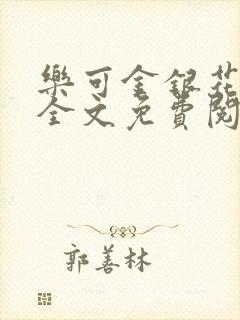 樂可金銀花
全文免費閱
郭善林